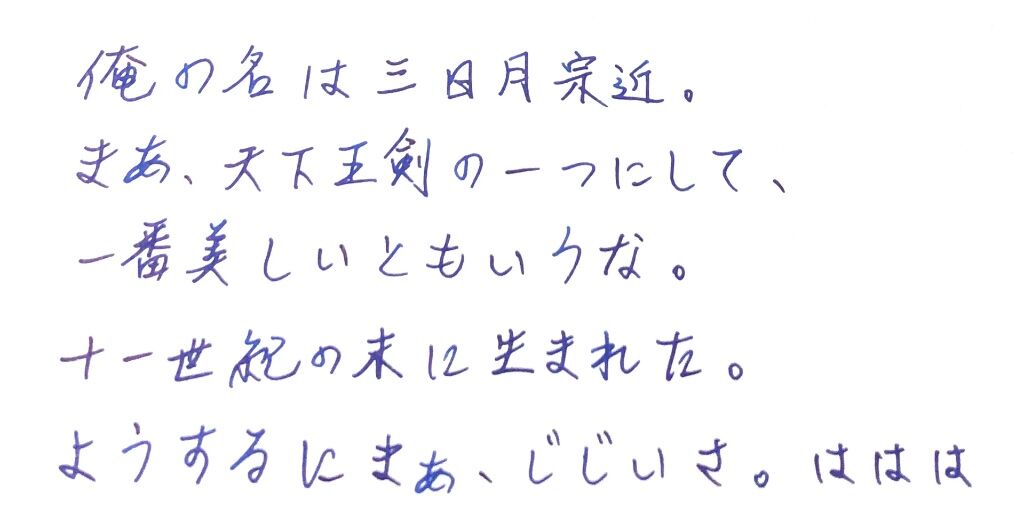 俺の名は三日月宗近。
まあ、天下王剣の一つにして、
一番美しいともいうな。
十一世紀の末に生まれた。
ようするにまぁ、じじいさ。ははは